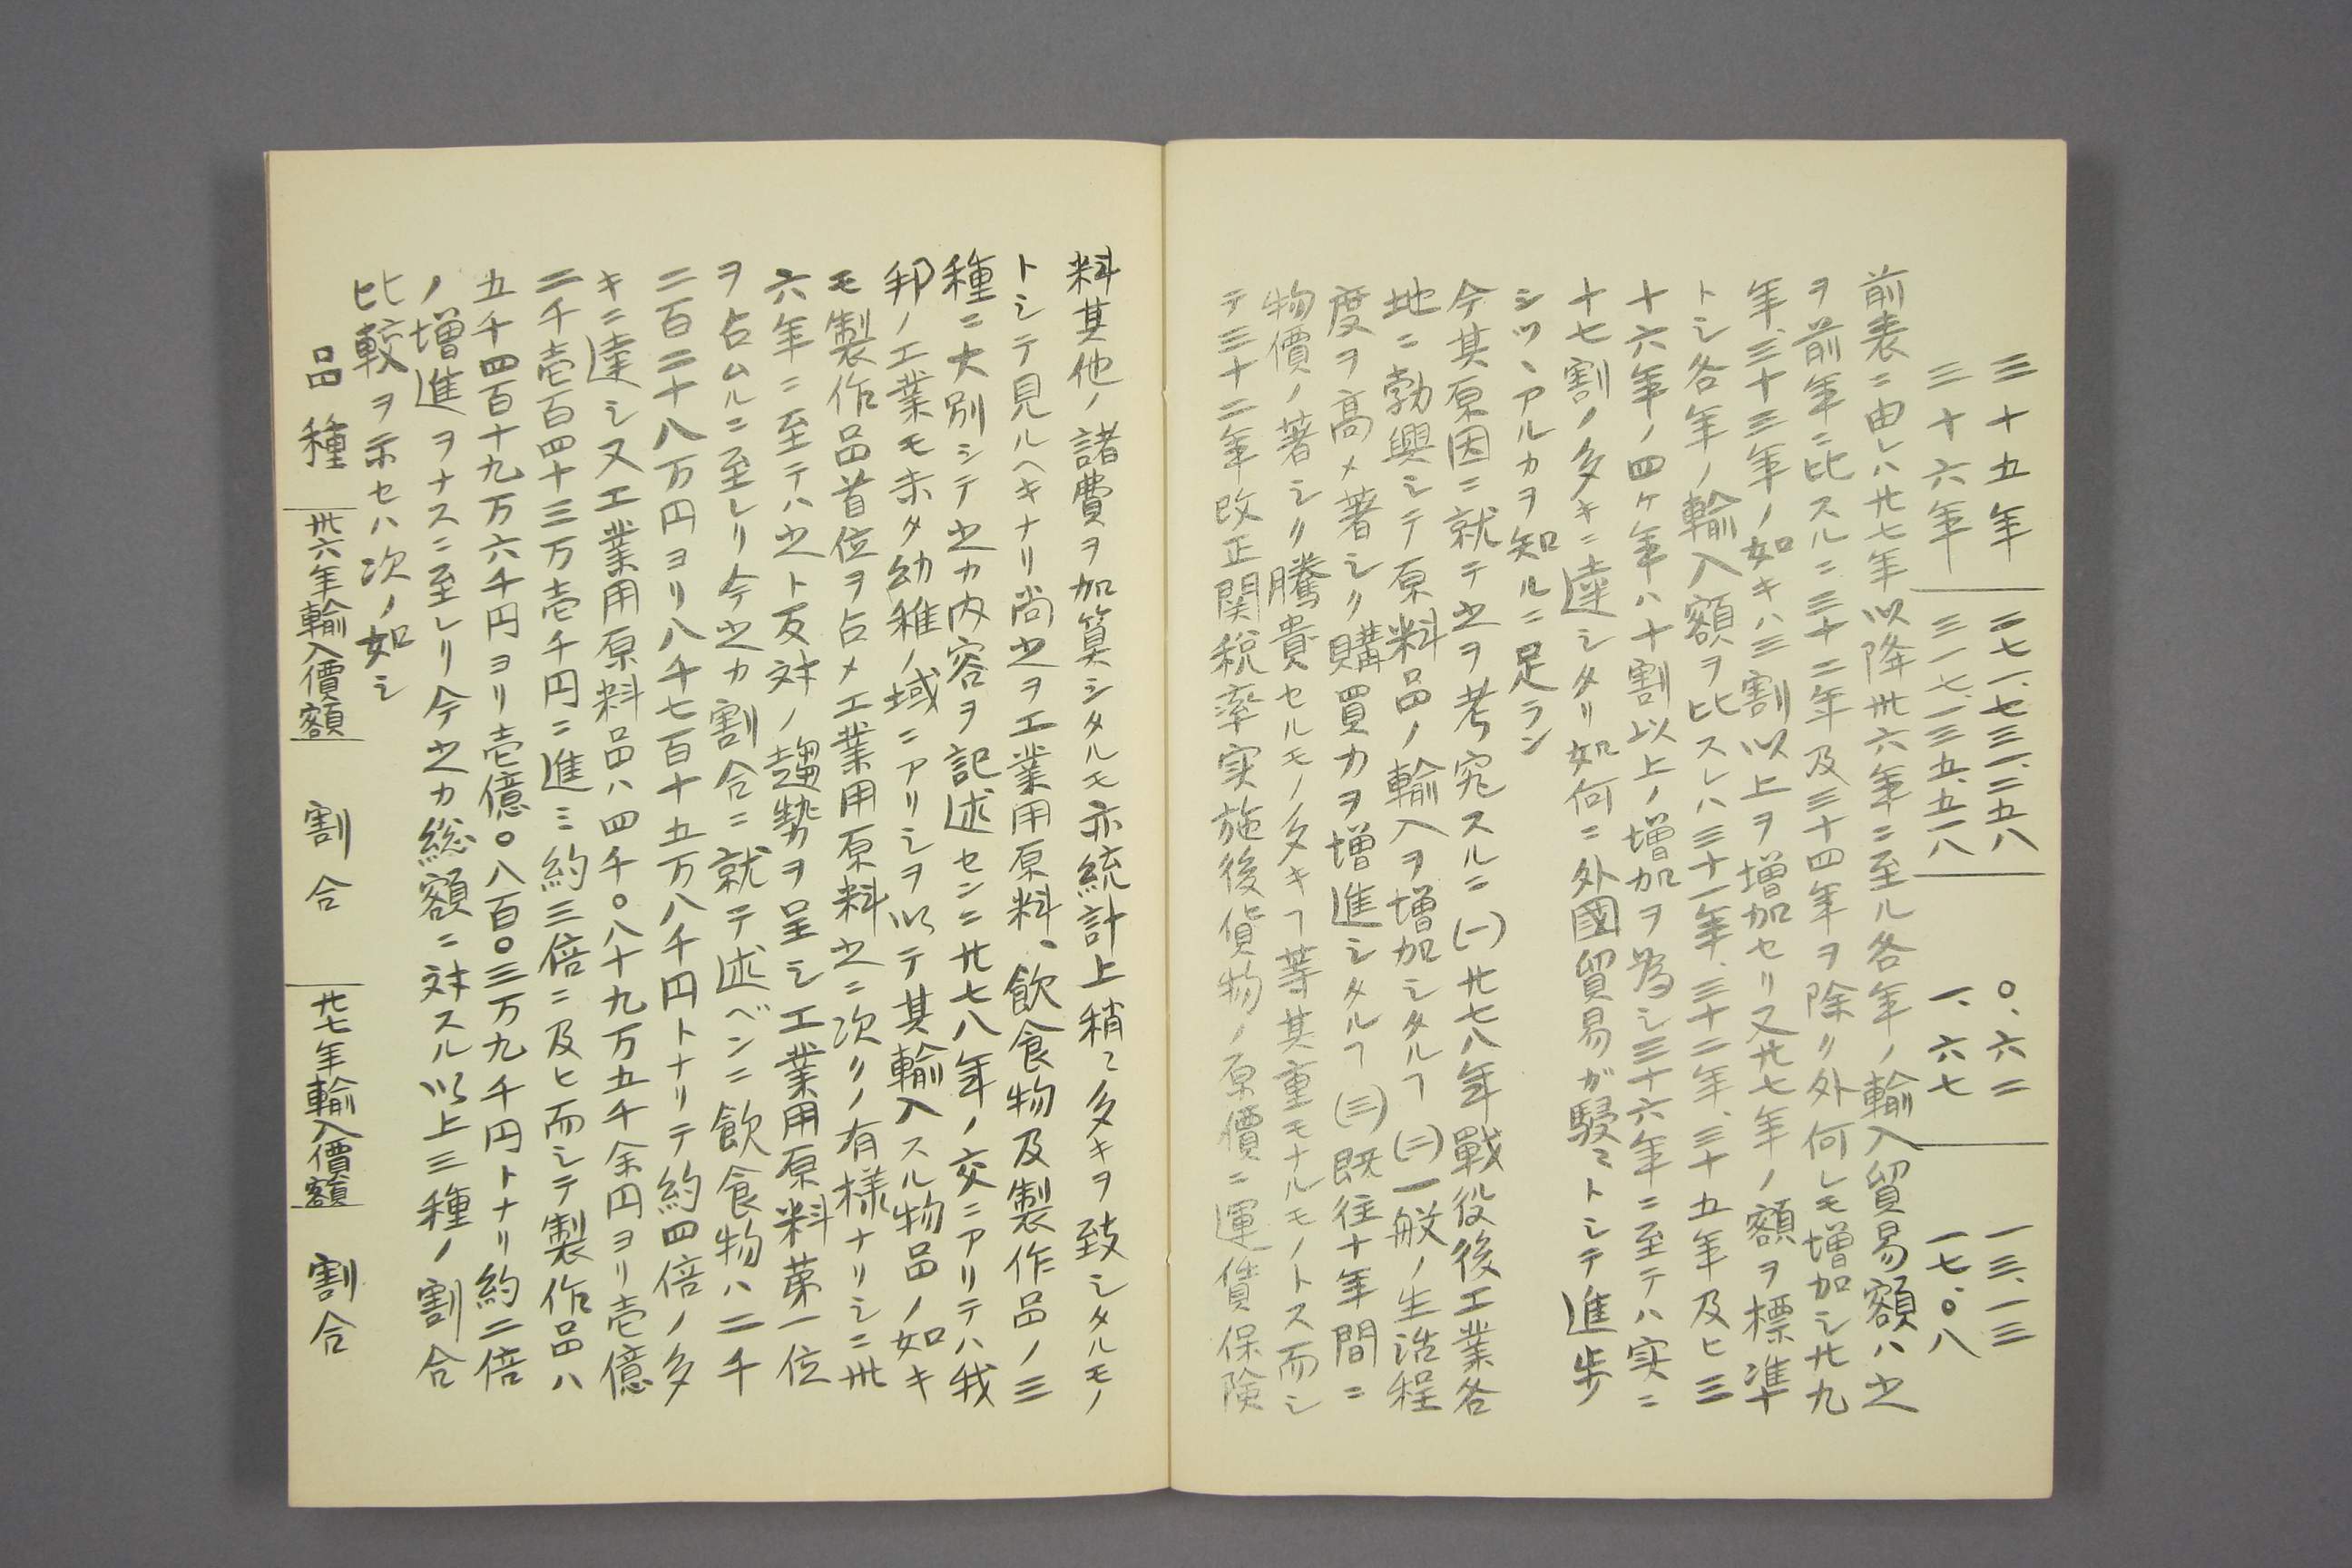 三十五年 二七一、七三一、二五八 〇、六二 一三、一三
三十六年 三一七、一三五、五一八 一、六七 一七、〇八
前表ニ由レハ廿七年以降卅六年ニ至ル各年ノ輸入貿易額ハ之
ヲ前年ニ比スルニ三十二年及三十四年ヲ除ク外何レモ増加シ廿九
年、三十三年ノ如キハ三割以上ヲ増加セリ又廿七年ノ額ヲ標準
トシ各年ノ輸入額ヲ比スレハ三十一年、三十二年、三十五年及ヒ三
十六年ノ四ケ年ハ十割以上ノ増加ヲ為シ三十六年ニ至テハ実ニ
十七割ノ多キニ達シタリ如何ニ外國貿易が駸々トシテ進歩
シツヽアルカヲ知ルニ足ラン
今其原因ニ就テ之ヲ考究スルニ(一)廿七八年戰役後工業各
地ニ勃興シテ原料品ノ輸入ヲ増加シタルヿ(二)一般ノ生活程
度ヲ高メ著シク購買力ヲ増進シタルヿ(三)既往十年間ニ
物價ノ著シク騰貴セルモノ多キヿ等其重モナルモノトス而シ
テ三十二年改正関税率実施後貨物ノ原價ニ運賃保険
料其他ノ諸費ヲ加算シタルモ亦統計上稍々多キヲ致シタルモノ
トシテ見ルヘキナリ尚之ヲ工業用原料、飲食物及製作品ノ三
種ニ大別シテ之カ内容ヲ記述センニ廿七八年ノ交ニアリテハ我
邦ノ工業モ未タ幼稚ノ域ニアリシヲ以テ其輸入スル物品ノ如キ
モ製作品首位ヲ占メ工業用原料之ニ次クノ有様ナリシニ卅
六年ニ至テハ之ト反対ノ趨勢ヲ呈シ工業用原料第一位
ヲ占ムルニ至レリ今之カ割合ニ就テ述ベンニ飲食物ハ二千
二百二十八万円ヨリ八千七百十五万八千円トナリテ約四倍ノ多
キニ達シ又工業用原料品ハ四千〇八十九万五千余円ヨリ壱億
二千壱百四十三万壱千円ニ進ミ約三倍ニ及ヒ而シテ製作品ハ
五千四百十九万六千円ヨリ壱億〇八百〇三万九千円トナリ約二倍
ノ増進ヲナスニ至レリ今之カ総額ニ対スル以上三種ノ割合
比較ヲ示セハ次ノ如シ
品種 卅六年輸入價額 割合 廿七年輸入價額 割合